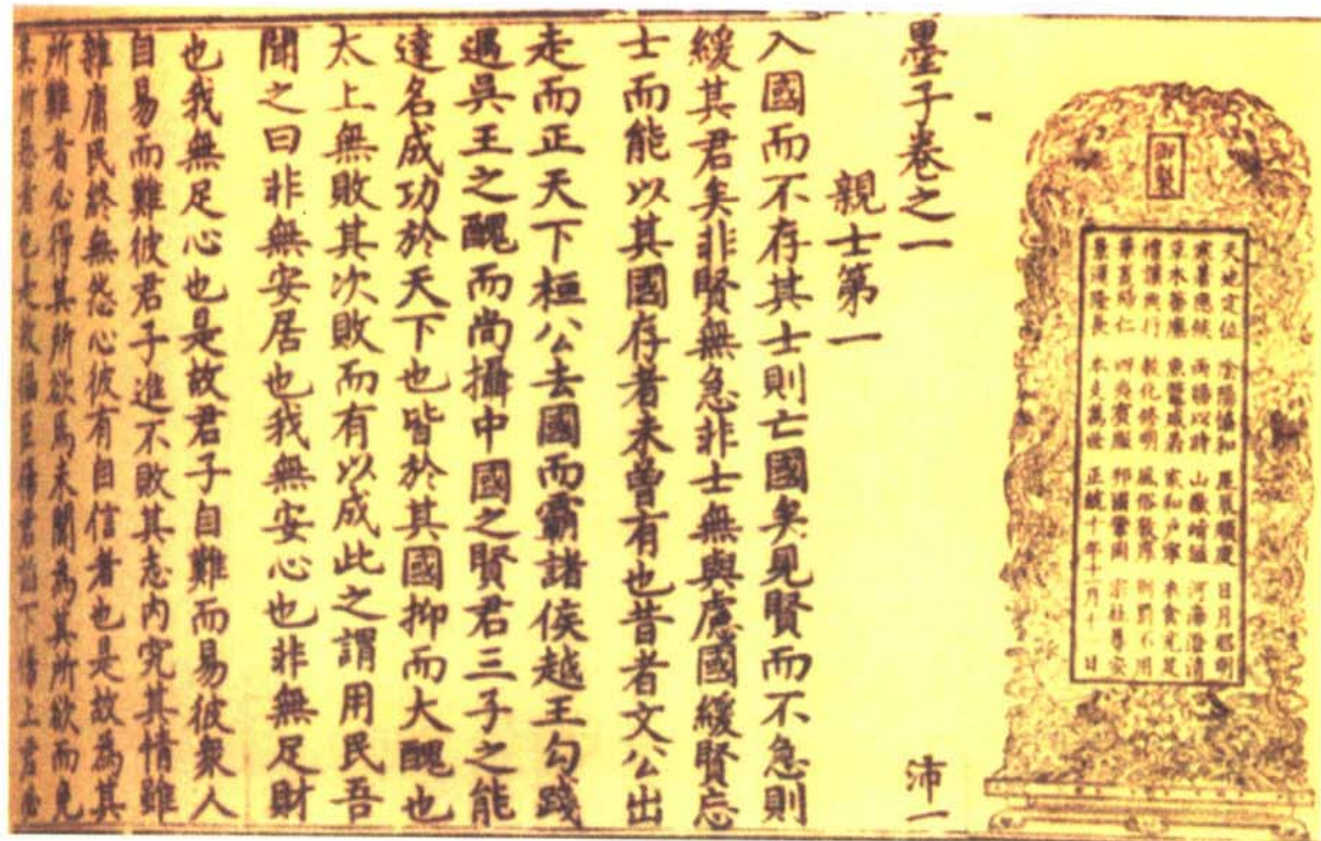 御製
天地定位 陰陽協和 星辰順度 日月昭明
寒暑應候 雨暘以時 山嶽靖謐 河海澄清
草木蕃廡 魚鼈咸若 家和戶寧 衣食充足
禮讓興行 教化修明 風俗敦厚 刑罰不用
華夏歸仁 四夷賓服 邦國鞏固 宗社尊安
景運隆長 本支萬世 正統十年十一月十一日
墨子卷之一 沛一
親士第一
入國而不存其士則亡國矣見賢而不急則
緩其君矣非賢無急非士無與慮國緩賢忘
士而能以其國存者未曾有也昔者文公出
走而正天下桓公去國而霸諸侯越王勾踐
遇吳王之醜而尚攝中國之賢君三子之能
達名成功於天下也皆於其國抑而大醜也
太上無敗其次敗而有以成此之謂用民吾
聞之曰非無安居也我無安心也非無足財
也我無足心也是故君子自難而易彼衆人
自易而難彼君子進不敗其志内究其情雖
雜庸民終無怨心彼有自信者也是故為其
所難者必得其所欲焉未聞為其所欲而免
其所惡者也是故偪臣傷君諂下傷上君必